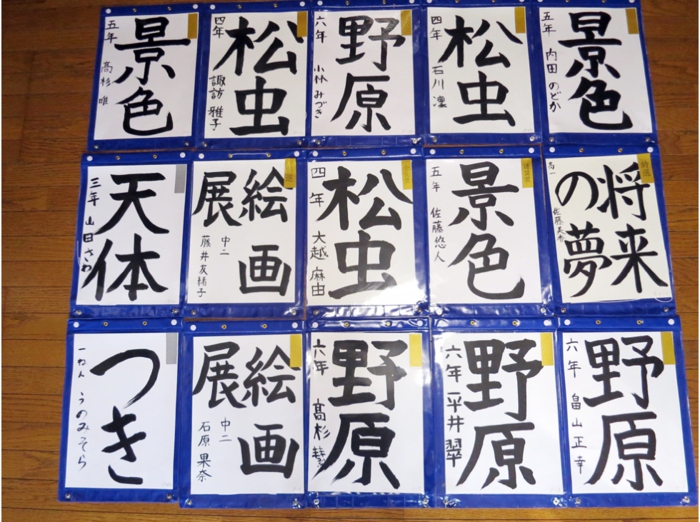 景色
五年 高杉 唯
松虫
四年 諏訪 雅子
野原
六年 小林 みづき
松虫
四年 石川 凜
景色
五年 内田 のどか
天体
三年 山田 さわ
絵画展
中二 藤井友緒子
松虫
四年 大越 麻由
景色
五年 佐藤 悠人
将来の夢
つき
一ねん うのみそら
絵画展
中二 石原 果奈
野原
六年 高杉
野原
六年 平井 翠
野原
六年 畠山 正幸